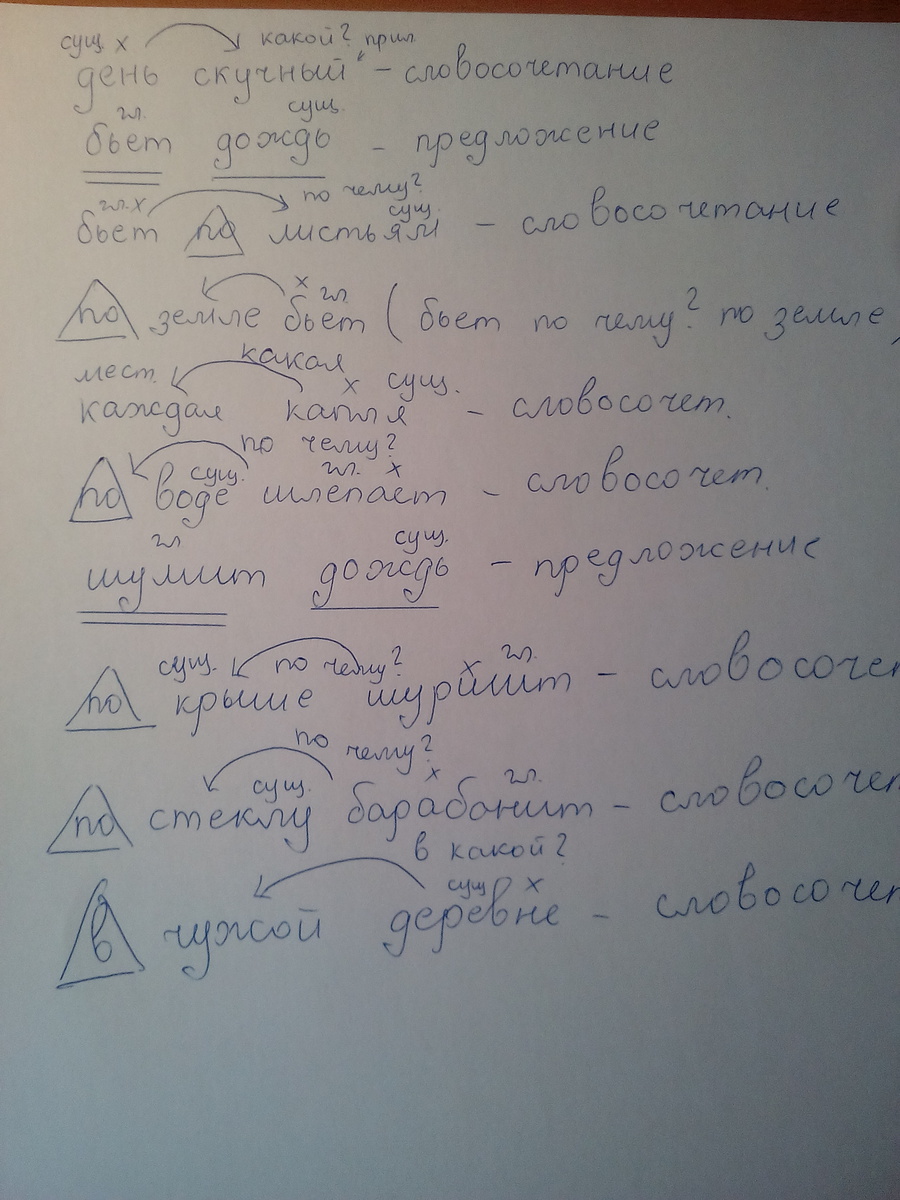 сущ. х какой? прил.
день скучный - словосочетание
гл. сущ.
бьет дождь - предложение
гл. х по чему? сущ.
бьет по листьям - словосочетание
х гл.
по земле бьет ( бьет по чему? по земле )
мест. какая х сущ.
каждая капля - словосочет.
по чему? сущ. гл. х
по воде шлепает - словосочет.
гл сущ.
шумит дождь - предложение
сущ. по чему? х гл.
по крыше шуршит - словосочет
по чему?
сущ. х гл.
по стеклу барабанит - словосочет
в какой?
сущ х
в чужой деревне - словосочет